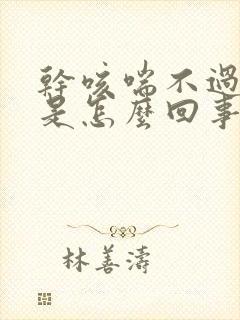 幹咳喘不過
是怎麼回事
林善濤